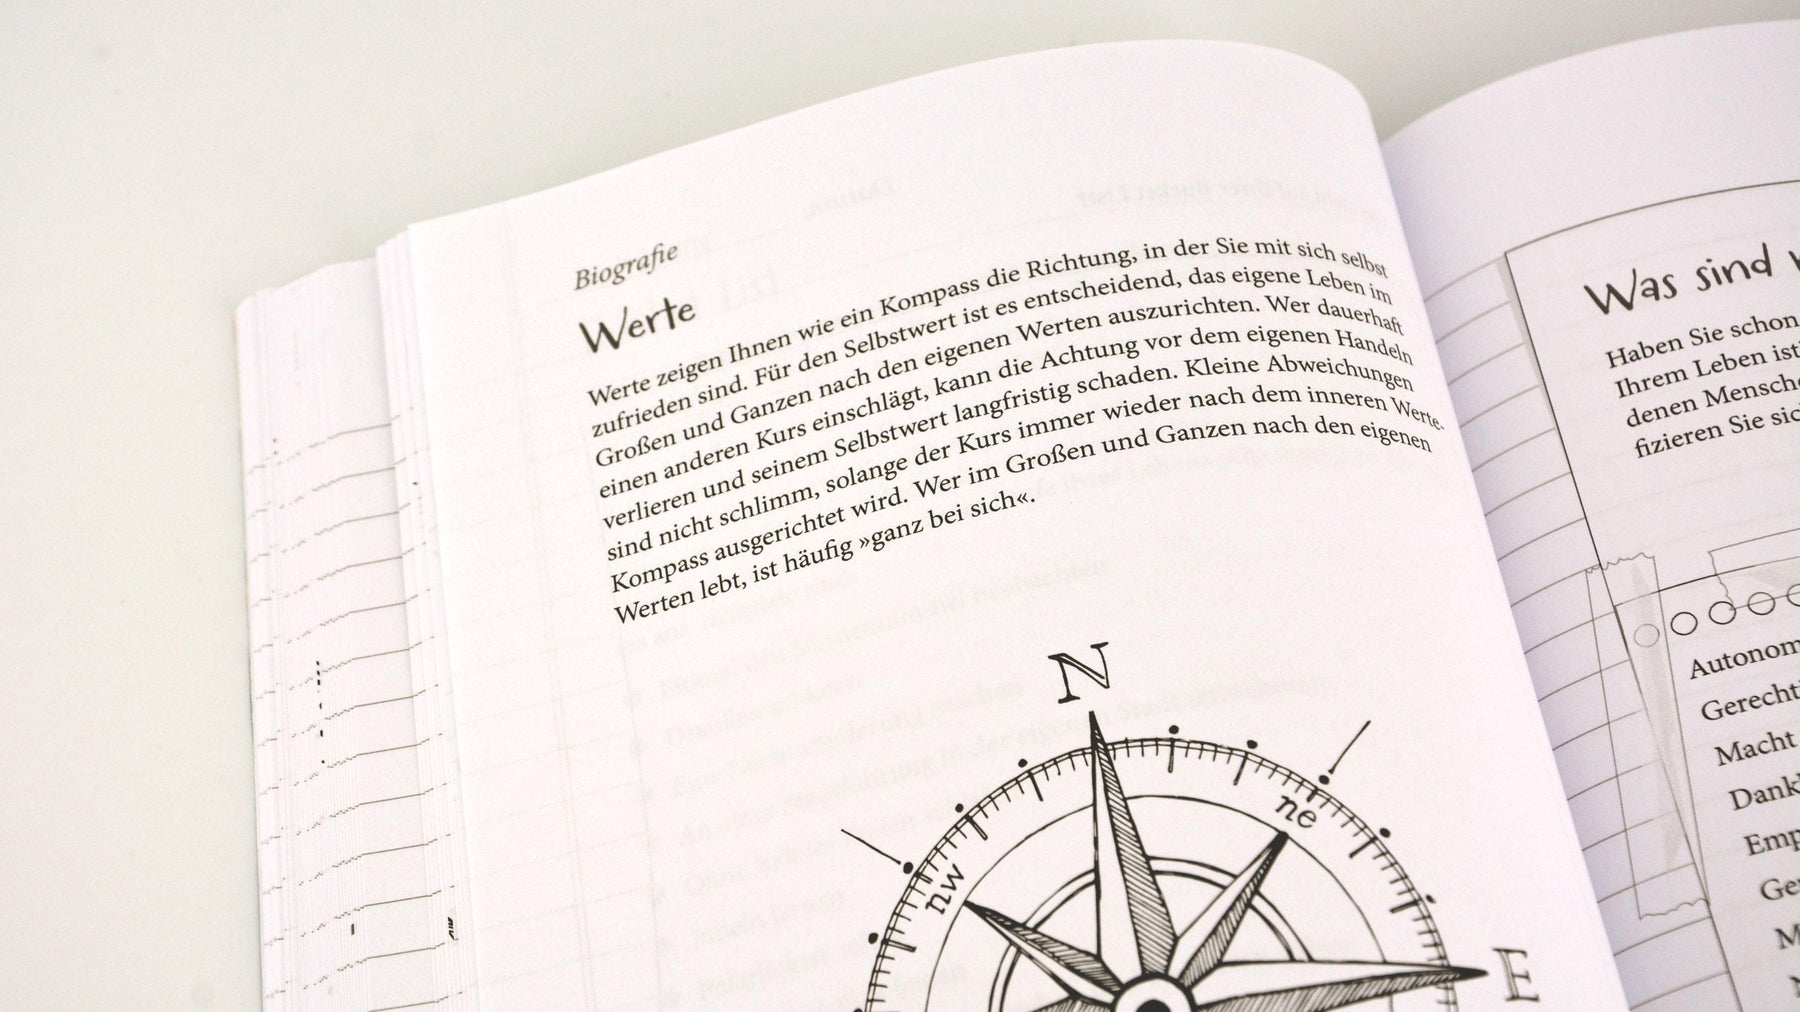 Biografie
Werte
Werte zeigen Ihnen wie ein Kompass die Richtung, in der Sie mit sich selbst
zufrieden sind. Für den Selbstwert ist es entscheidend, das eigene Leben im
Großen und Ganzen nach den eigenen Werten auszurichten. Wer dauerhaft
einen anderen Kurs einschlägt, kann die Achtung vor dem eigenen Handeln
verlieren und seinem Selbstwert langfristig schaden. Kleine Abweichungen
sind nicht schlimm, solange der Kurs immer wieder nach dem inneren Werte-
Kompass ausgerichtet wird. Wer im Großen und Ganzen nach den eigenen
Werten lebt, ist häufig »ganz bei sich«.
N
ne
nw
E
Was sind
Haben Sie schon
Ihrem Leben ist
denen Mensche
fizieren Sie sic
Autonom
Gerechti
Macht
Dank
Emp
Ge
M